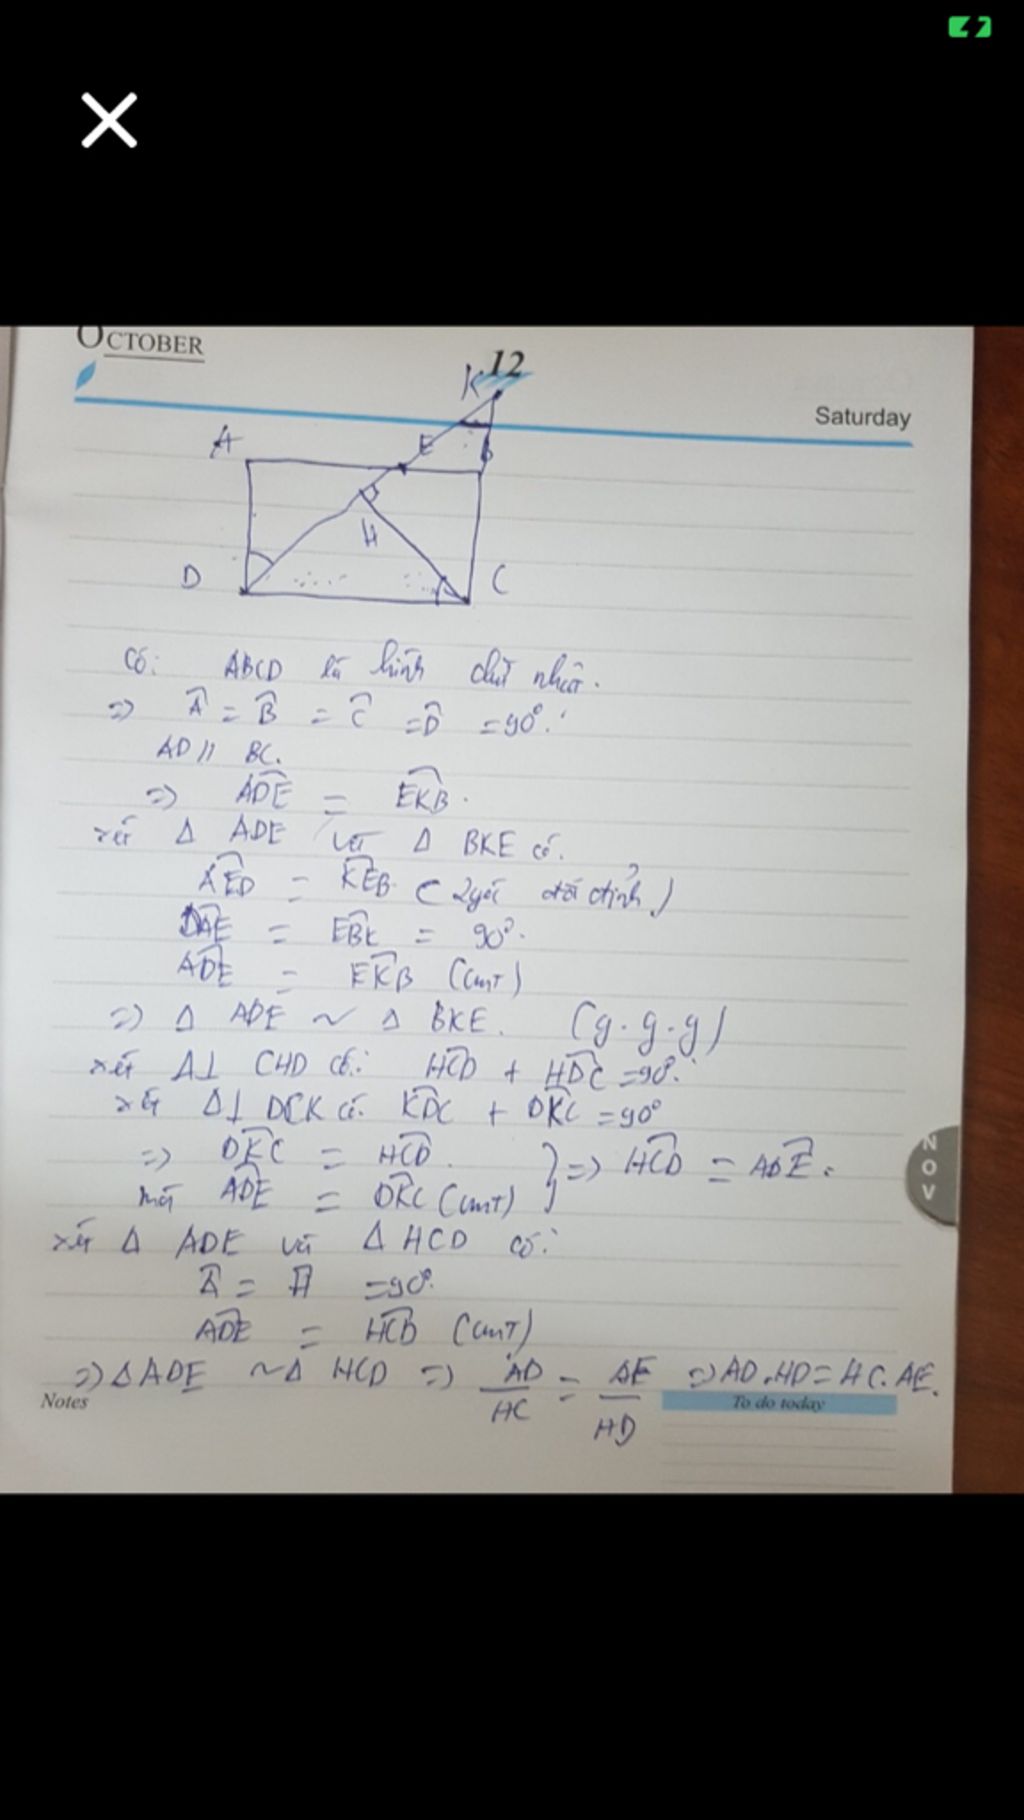 OCTOBER
12
Saturday
K
A E B
H
D C
Có: ABCD là hình chữ nhật.
=> Â = B̂ = Ĉ = D̂ = 90°.
AD // BC.
=> ADE = EKB.
xét Δ ADE và Δ BKE có.
AED = KEB (2 góc đối đỉnh)
DAE = EBK = 90°.
ADE = EKB (cmt)
=> Δ ADE ~ Δ BKE. (g.g.g)
xét Δ⊥ CHD có: HCD + HDC = 90°.
xét Δ⊥ DCK có. KDC + DKC = 90°
=> DKC = HCD. } => HCD = ADE.
mà ADE = DKC (cmt)
xét Δ ADE và Δ HCD có:
Â = Ĥ = 90°.
ADE = HCD (cmt)
=> Δ ADE ~ Δ HCD => AD/HC = AE/HD => AD.HD = HC.AE.
Notes
To do today
NOV